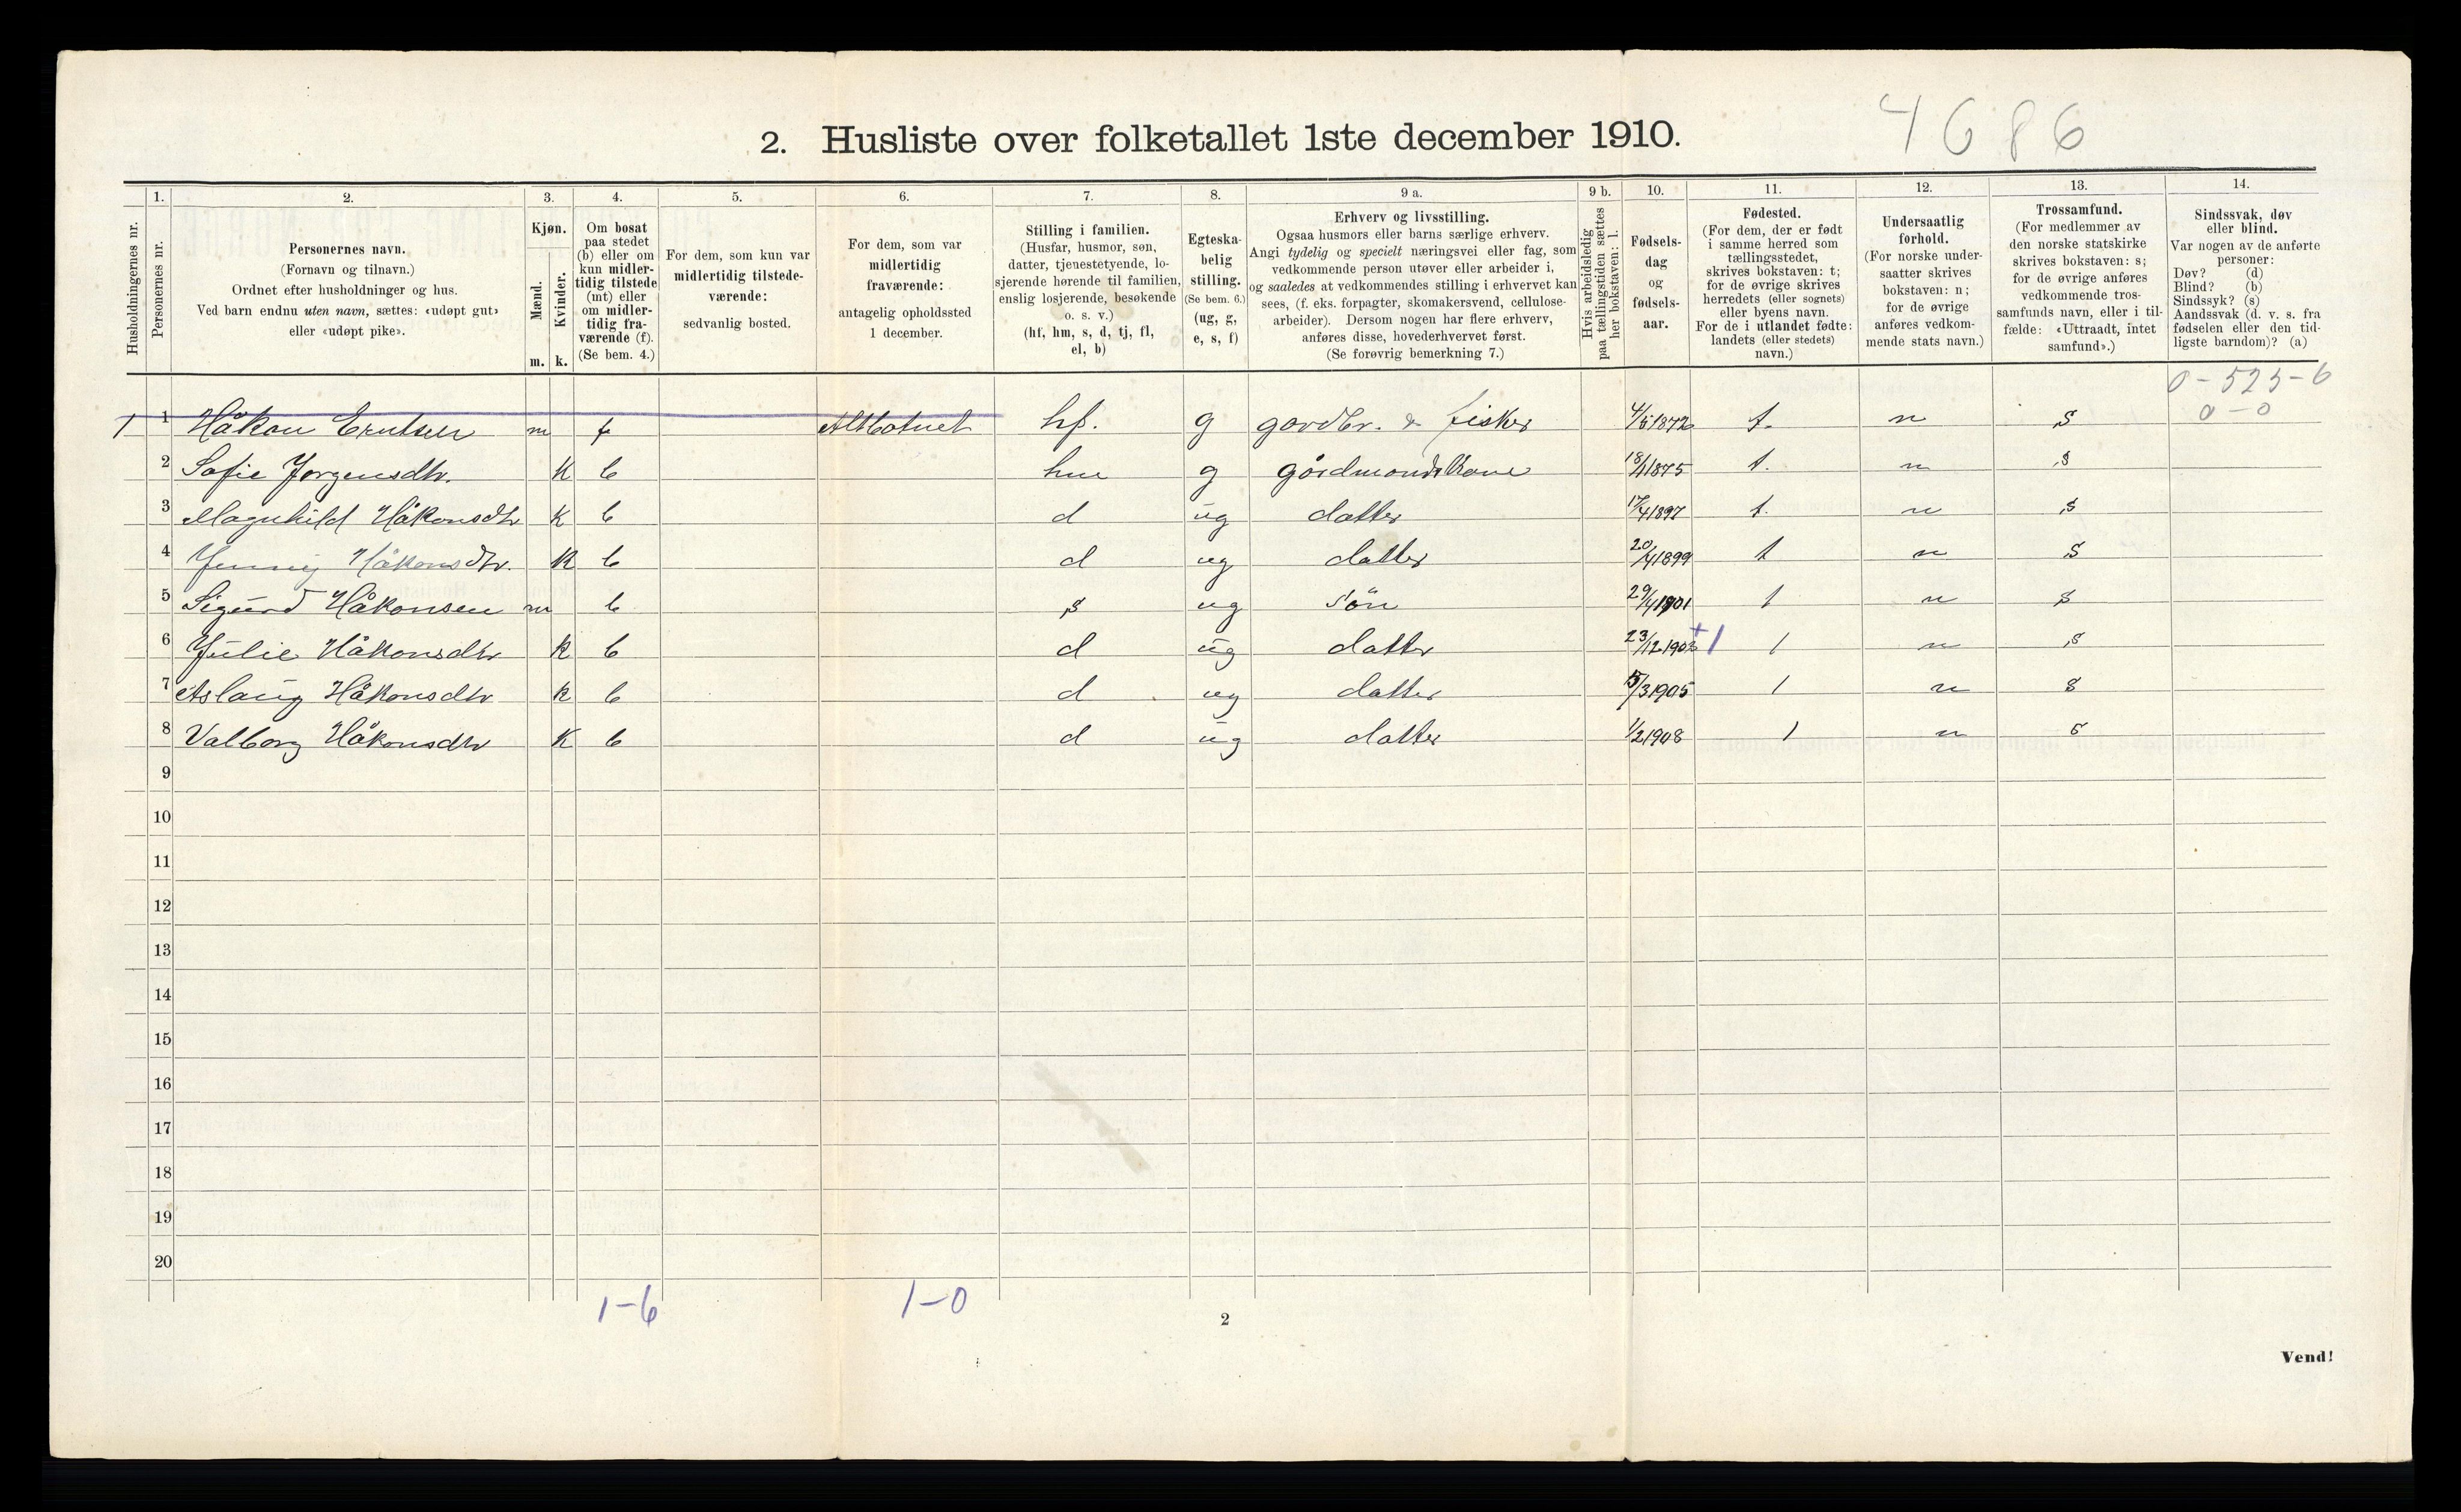 4686
2. Husliste over folketallet 1ste december 1910.
1. 2. 3. 4. 5. 6. 7. 8. 9 a. 9 b. 10. 11. 12. 13. 14.
Husholdningernes nr.
Personernes nr.
Personernes navn.
(Fornavn og tilnavn.)
Ordnet efter husholdninger og hus.
Ved barn endnu uten navn, sættes: «udøpt gut»
eller «udøpt pike».
Kjøn.
Mænd.
Kvinder.
m. k.
Om bosat
paa stedet
(b) eller om
kun midler-
tidig tilstede
(mt) eller
om midler-
tidig fra-
værende (f).
(Se bem. 4.)
For dem, som kun var
midlertidig tilstede-
værende:
sedvanlig bosted.
For dem, som var
midlertidig
fraværende:
antagelig opholdssted
1 december.
Stilling i familien.
(Husfar, husmor, søn,
datter, tjenestetyende, lo-
sjerende hørende til familien,
enslig losjerende, besøkende
o. s. v.)
(hf, hm, s, d, tj, fl,
el, b)
Egteska-
belig
stilling.
(Se bem. 6.)
(ug, g,
e, s, f)
Erhverv og livsstilling.
Ogsaa husmors eller barns særlige erhverv.
Angi tydelig og specielt næringsvei eller fag, som
vedkommende person utøver eller arbeider i,
og saaledes at vedkommendes stilling i erhvervet kan
sees, (f. eks. forpagter, skomakersvend, cellulose-
arbeider). Dersom nogen har flere erhverv,
anføres disse, hovederhvervet først.
(Se forøvrig bemerkning 7.)
Hvis arbeidsledig
paa tællingstiden sættes
her bokstaven: l.
Fødsels-
dag
og
fødsels-
aar.
Fødested.
(For dem, der er født
i samme herred som
tællingsstedet,
skrives bokstaven: t;
for de øvrige skrives
herredets (eller sognets)
eller byens navn.
For de i utlandet fødte:
landets (eller stedets)
navn.)
Undersaatlig
forhold.
(For norske under-
saatter skrives
bokstaven: n;
for de øvrige
anføres vedkom-
mende stats navn.)
Trossamfund.
(For medlemmer av
den norske statskirke
skrives bokstaven: s;
for de øvrige anføres
vedkommende tros-
samfunds navn, eller i til-
fælde: «Uttraadt, intet
samfund».)
Sindssvak, døv
eller blind.
Var nogen av de anførte
personer:
Døv? (d)
Blind? (b)
Sindssyk? (s)
Aandssvak (d. v. s. fra
fødselen eller den tid-
ligste barndom)? (a)
0-525-6
0-0
1 1 Håkon m f hf. g gardbr. & fisker 4/5 1872 t. n s
2 Sofie Jørgensdtr. K b hm g gårdmandskone 18/1 1875 t. n s
3 Magnhild Håkonsdtr K b d ug datter 17/4 1897 t. n s
4 Jenny Håkonsdtr. K b d ug datter 20/4 1899 t n s
5 Sigurd Håkonsen m b s ug søn 29/4 1901 t n s
6 Julie Håkonsdtr K b d ug datter t n s
7 Aslaug Håkonsdtr K b d ug datter t n s
8 Valborg Håkonsdtr K b d ug datter 1/2 1908 t n s
9
10
11
12
13
14
15
16
17
18
19
20
1-6 1-0
2
Vend!